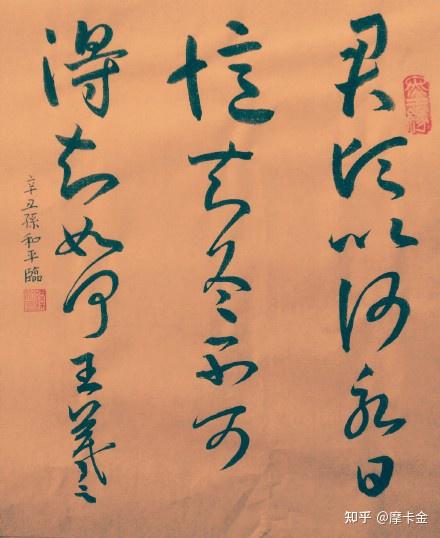 君頃以何永日
憶去冬不可
得知如何王羲之
辛丑孫和平臨
知乎 @摩卡金